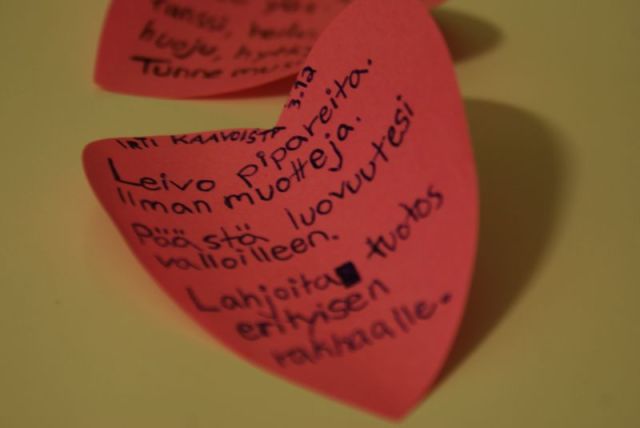 huoju,
Tunne
3.12
IRTI KAAVOISTA
Leivo pipareita.
Ilman muotteja.
Päästä luovuutesi
valloilleen.
Lahjoita tuotos
erityisen
rakkaalle.